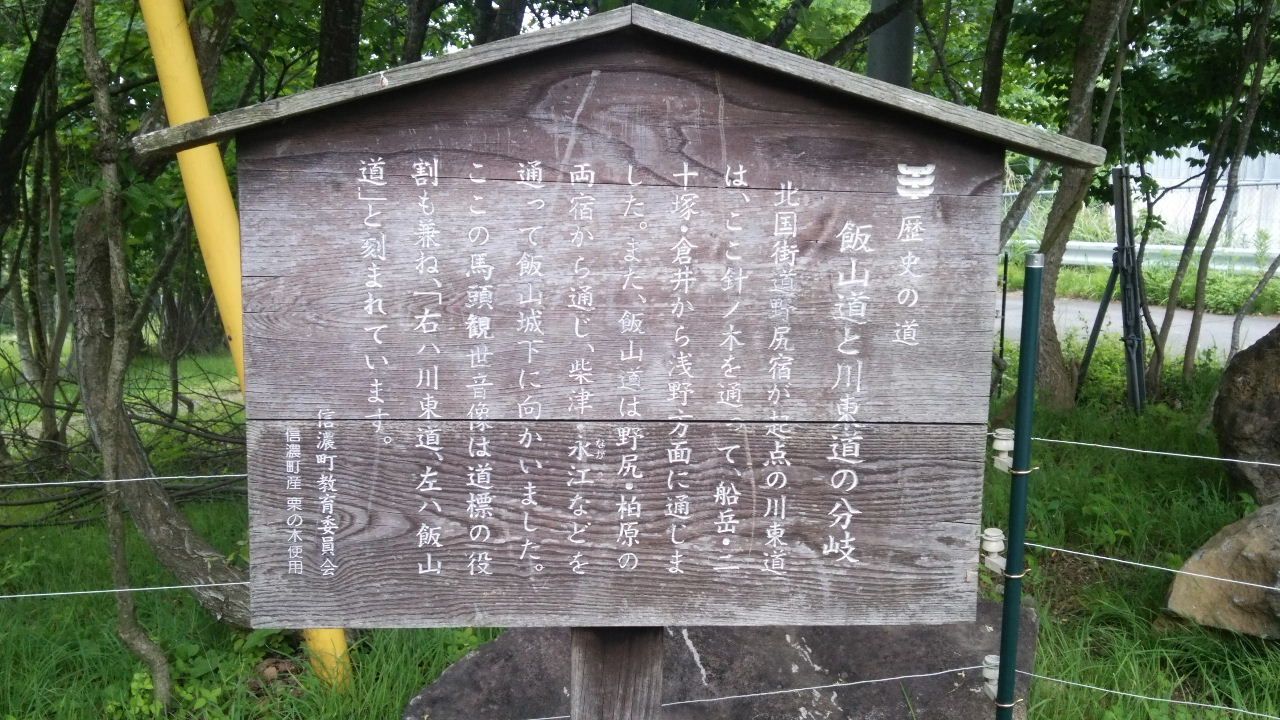 歴史の道
飯山道と川東道の分岐
北国街道野尻宿が起点の川東道
は、ここ針ノ木を通って、船岳・二
十塚・倉井から浅野方面に通じま
した。また、飯山道は野尻・柏原の
両宿から通じ、柴津・水江などを
なが
通って飯山城下に向かいました。
ここの馬頭観世音像は道標の役
割も兼ね、「右ハ川東道、左ハ飯山
道」と刻まれています。
信濃町教育委員会
信濃町産 栗の木使用